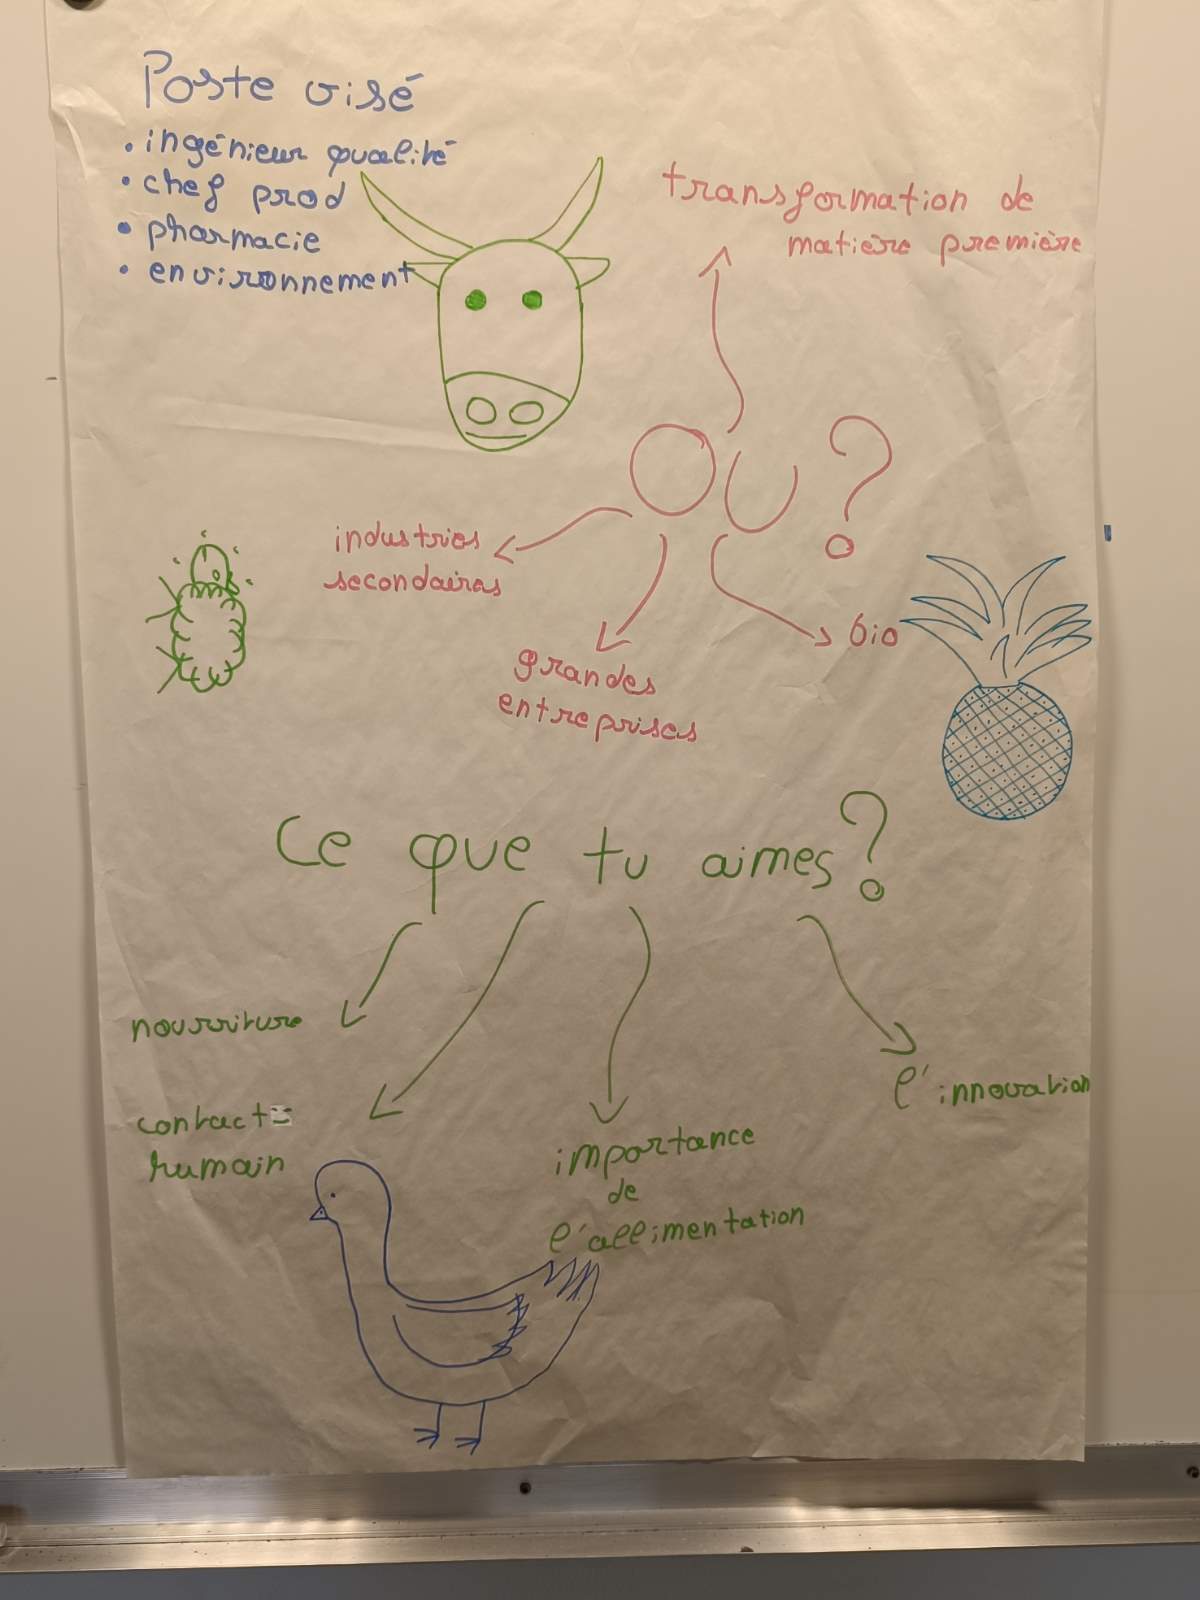 Poste visé
• ingénieur qualité
• chef prod
• pharmacie
• environnement
transformation de
matière première
OU ?
industries
secondaires
grandes
entreprises
bio
Ce que tu aimes ?
nourriture
contact
humain
importance
de
l'allimentation
l'innovation